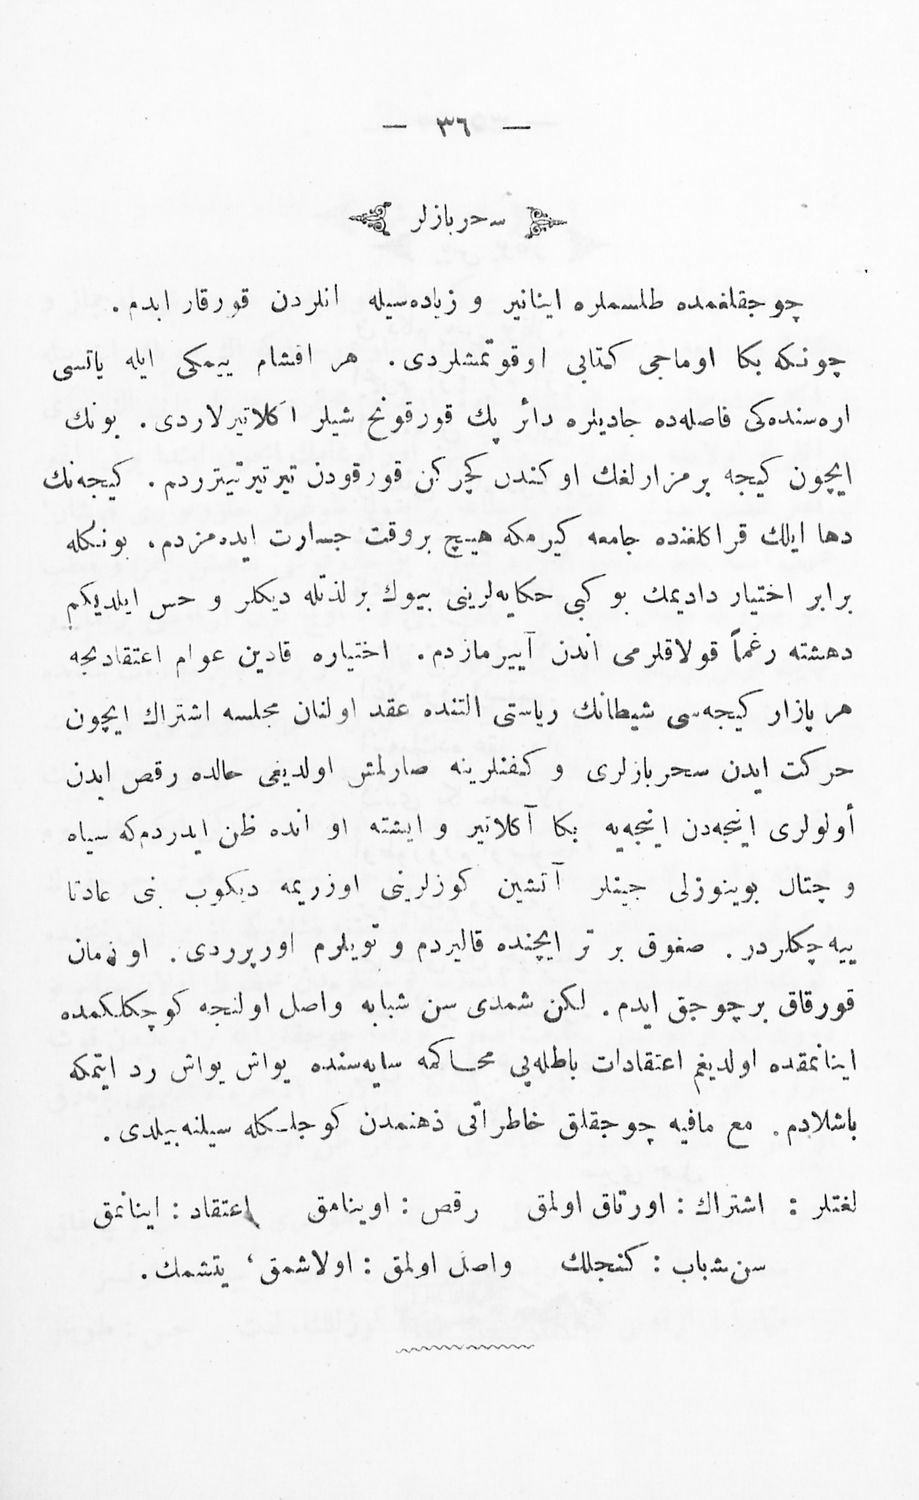 — ٣٦ —
سحربازلر
چوجقلغمده طلسملره اینانیر و زیاده‌سیله انلردن قورقار ایدم .
چونکه بکا اوماجی کتابی اوقوتمشلردی . هر اقشام ییمکی ایله یاتسی
اره‌سنده‌کی فاصله‌ده جادیلره دائر پك قورقونج شیلر اکلاتیرلاردی . بونك
ایچون کیجه برمزارلغك اوکندن کچرکن قورقودن تیرتیرتیتردم . کیجه‌نك
دها ایلك قراکلغنده جامعه کیرمکه هیچ بروقت جسارت ایده‌مزدم . بونکله
برابر اختیار دادیمك بو کبی حکایه‌لرینی بیوك برلذتله دیکلر و حس ایلدیکم
دهشته رغماً قولاقلرمی اندن آییرمازدم . اختیاره قادین عوام اعتقادیجه
هر پازار کیجه‌سی شیطانك ریاستی التنده عقد اولنان مجلسه اشتراك ایچون
حرکت ایدن سحربازلری و کفنلرینه صارلمش اولدیغی حالده رقص ایدن
أولولری اینجه‌دن اینجه‌یه بکا آکلاتیر و ایشته او انده ظن ایدردم‌که سیاه
و چتال بوینوزلی جینلر آتشین کوزلرینی اوزریمه دیکوب بنی عادتا
ییه‌جکلردر . صغوق بر تر ایچنده قالیردم و تویلرم اورپرردی . او زمان
قورقاق برچوجق ایدم . لکن شمدی سن شبابه واصل اولنجه کوچکلکمده
اینانمقده اولدیغم اعتقادات باطله‌یی محاکمه سایه‌سنده یواش یواش رد ایتمکه
باشلادم . مع مافیه چوجقلق خاطراتی ذهنمدن کوجلـکله سیلنه‌بیلدی .
لغتلر : اشتراك : اورتاق اولمق رقص : اوینامق اعتقاد : اینانمق
سن‌شباب : کنجلك واصل اولمق : اولاشمق ، یتشمك .